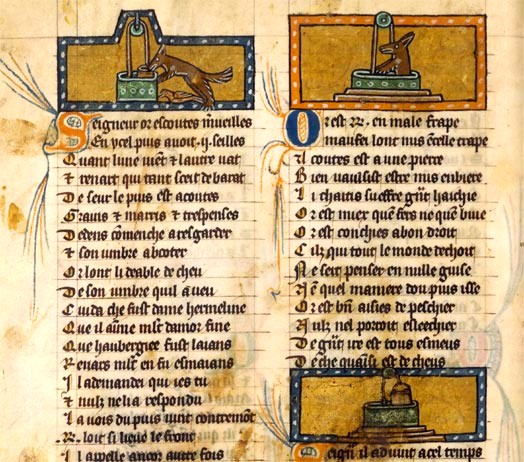 Seigneur or escoutes mueilles
En ycel puis auoit .ij. seilles
Quant lune uient & lautre uat
Et renart qui tant sceit de barat
De seur le puis est acoutes
Grains & marris & trespenses
Dedens comenche a resgarder
Et son umbre aboter
Or lont li deable de cheu
De son umbre quil a veu
Cuida che fust dame hermeline
Que il aime mlt damor fine
Que haubergiee fust laians
Renars mlt en fu esmaians
Il a demander qui ies tu
Et nulz ne lia respondu
La vois du puis vint contremont
.R. loit si lieue le front
Il lappelle ancor autre fois
Or est .R. en male frape
maufei lont mis en telle trape
Acoutes est a une pierre
Bien vausist estre mis en biere
Li chaitis sueffre grant
Or est
Or est conchies a bon droit
Cilz qui tout le monde
Ne seit penser en nulle guise
Ne en quel maniere dou puis isse
Or est bien aisies de peschier
Nulz nel porroit
De grant ire est tous esmeus
De che quainsi est decheus
Seigneur il aduint a cel temps